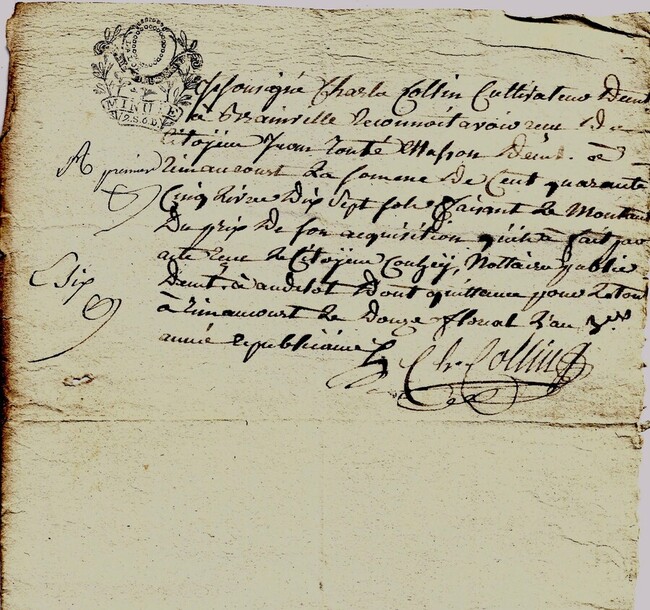 MINUTE
2.S.6.D
Soussigné Charle Collin Cultivateur Deut
à Brainville Reconnoit avoir reçu Du
Citoyene Jean Deut. à
Rimaucourt La somme De Cent quarante
Cinq Livre Dix Sept sols faisant Le Montant
Du prix De son acquisition quil a fait par
acte reçu Le Citoyene Notaire publie
Deut. à andelot Dont quittance pour Le tout
à Rimaucourt Le Douze floreal L'an 3em
année republicaine
Ch. Collin
A premier